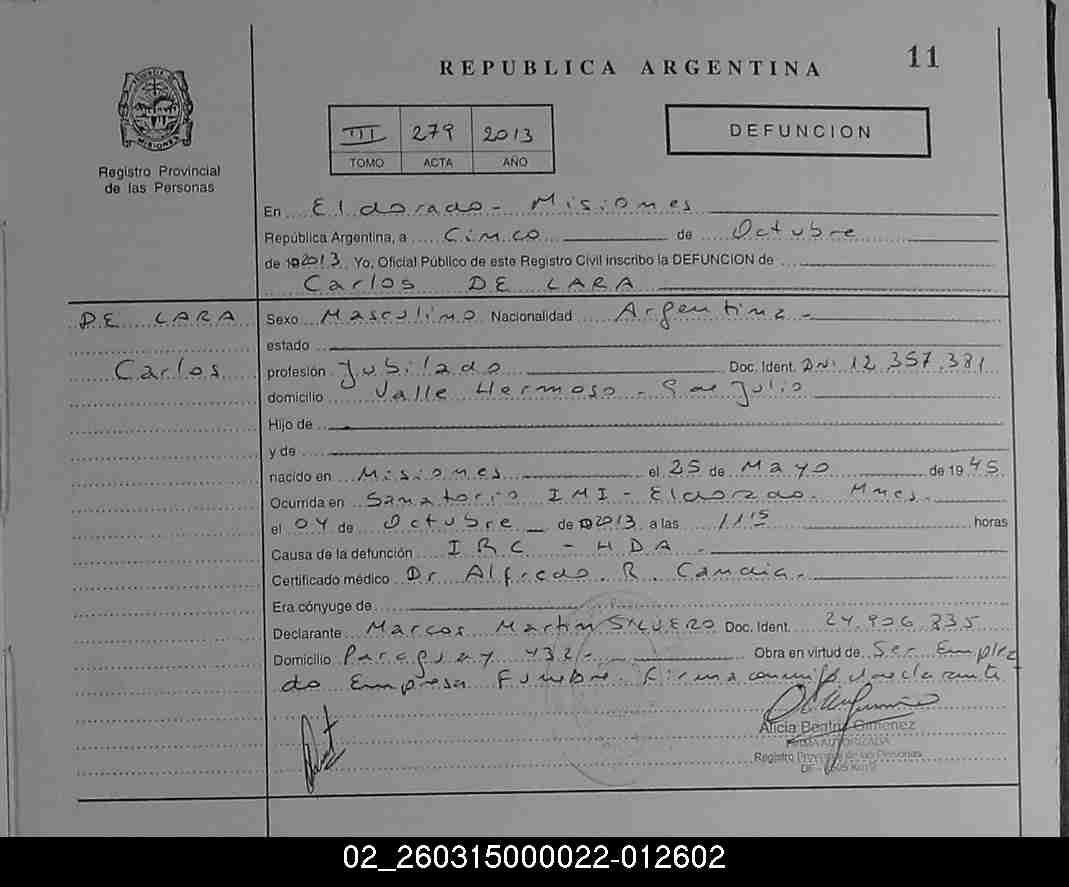 REPUBLICA ARGENTINA
11
PROVINCIA DE
MISIONES
Registro Provincial
de las Personas
III 279 2013
TOMO ACTA AÑO
DEFUNCION
En Eldorado - Misiones
República Argentina, a Cinco de Octubre
de 2013 Yo, Oficial Público de este Registro Civil inscribo la DEFUNCION de
Carlos DE LARA
DE LARA
Carlos
Sexo Masculino Nacionalidad Argentina -
estado
profesión Jubilado Doc. Ident. DNI 12.357.381
domicilio Valle Hermoso - 9 de Julio
Hijo de
y de
nacido en Misiones el 25 de Mayo de 1945
Ocurrida en Sanatorio IMI - Eldorado. Mnes.
el 04 de Octubre de 2013 a las 11 15 horas
Causa de la defunción IRC - HDA -
Certificado médico Dr Alfredo. R. Candia.
Era cónyuge de
Declarante Marcos Martin SILVERO Doc. Ident. 24.906.835
Domicilio Paraguay 432 - Obra en virtud de Ser Emplea
do Empresa Funebre. Firma conmigo declarante
Alicia Beatriz Gimenez
FIRMA AUTORIZADA
Registro Provincial de las Personas
02_260315000022-012602